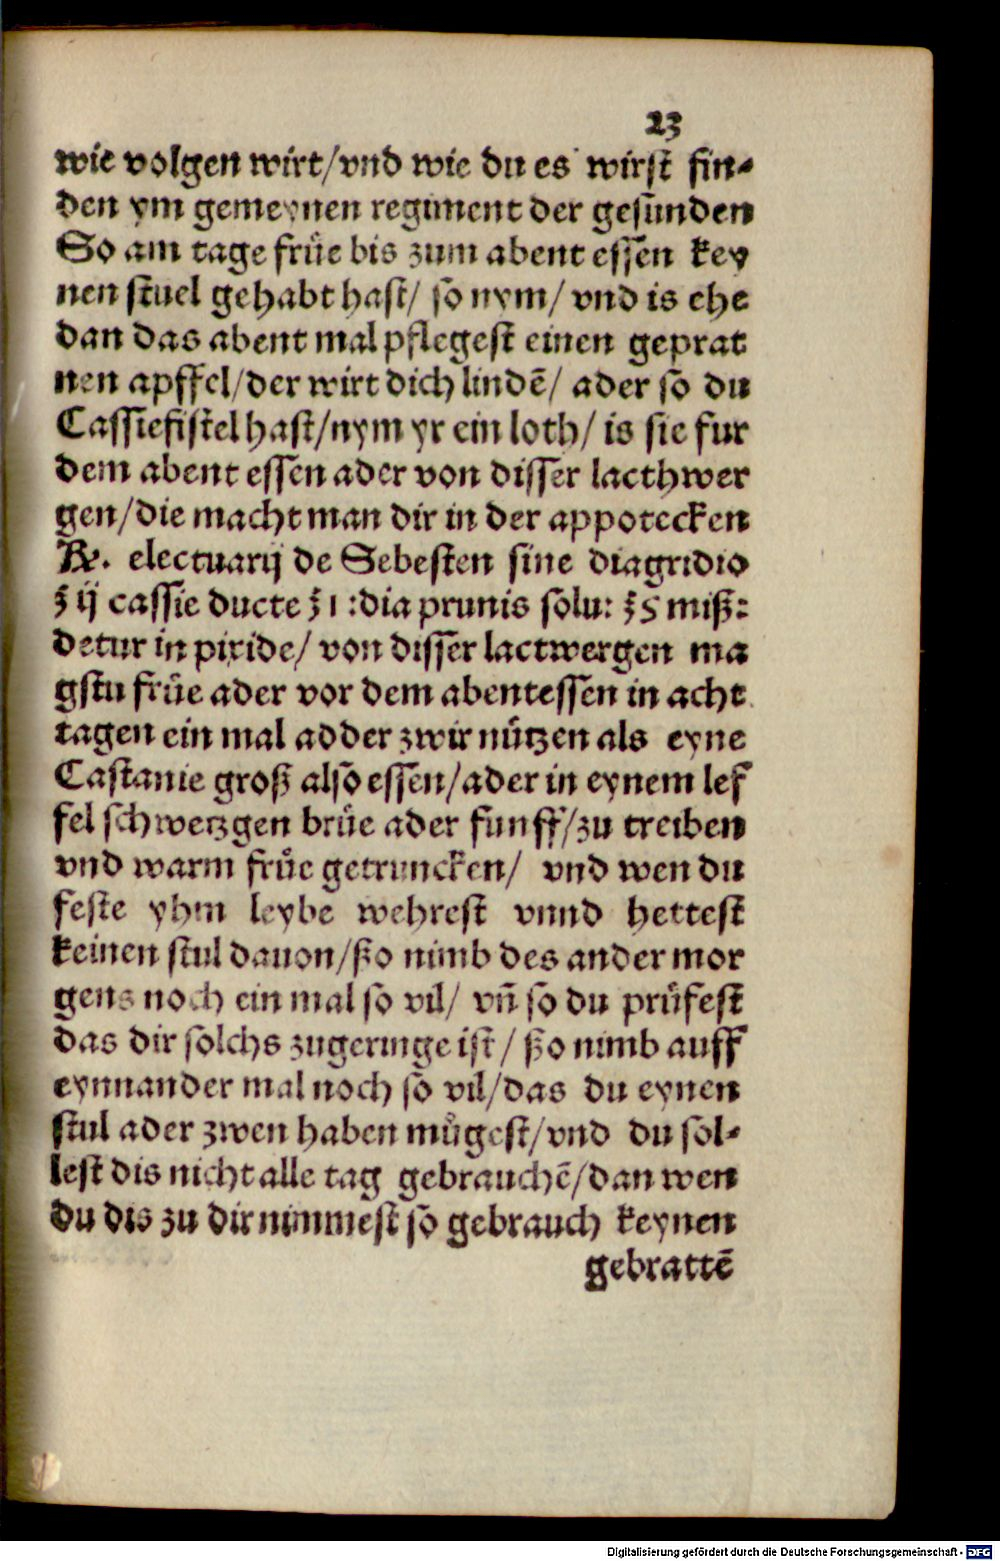 23
wie volgen wirt/vnd wie du es wirst fin-
den ym gemeynen regiment der gesunden
So am tage früe bis zum abent essen key
nen stuel gehabt hast/ so nym/ vnd is ehe
dan das abent mal pflegest einen geprat
nen apffel/der wirt dich lindē/ ader so du
Cassiefistel hast/nym yr ein loth/ is sie fur
dem abent essen ader von disser lacthwer
gen/die macht man dir in der appotecken
℞. electuarij de Sebesten sine diagridio
ʒ ij cassie ducte ʒ ı :dia prunis solu: ʒ s miß:
detur in pixide/ von disser lactwergen ma
gstu früe ader vor dem abentessen in acht
tagen ein mal adder zwir nützen als eyne
Castanie groß also essen/ader in eynem lef
fel schwetzgen brüe ader funff/zu treiben
vnd warm früe getruncken/ vnd wen du
feste yhm leybe wehrest vnnd hettest
keinen stul dauon/ßo nimb des ander mor
gens noch ein mal so vil/ vñ so du prüfest
das dir solchs zugeringe ist/ ßo nimb auff
eynnander mal noch so vil/das du eynen
stul ader zwen haben mügest/vnd du sol-
lest dis nicht alle tag gebrauchē/dan wen
du dis zu dir nimmest so gebrauch keynen
gebrattē
Digitalisierung gefördert durch die Deutsche Forschungsgemeinschaft - DFG